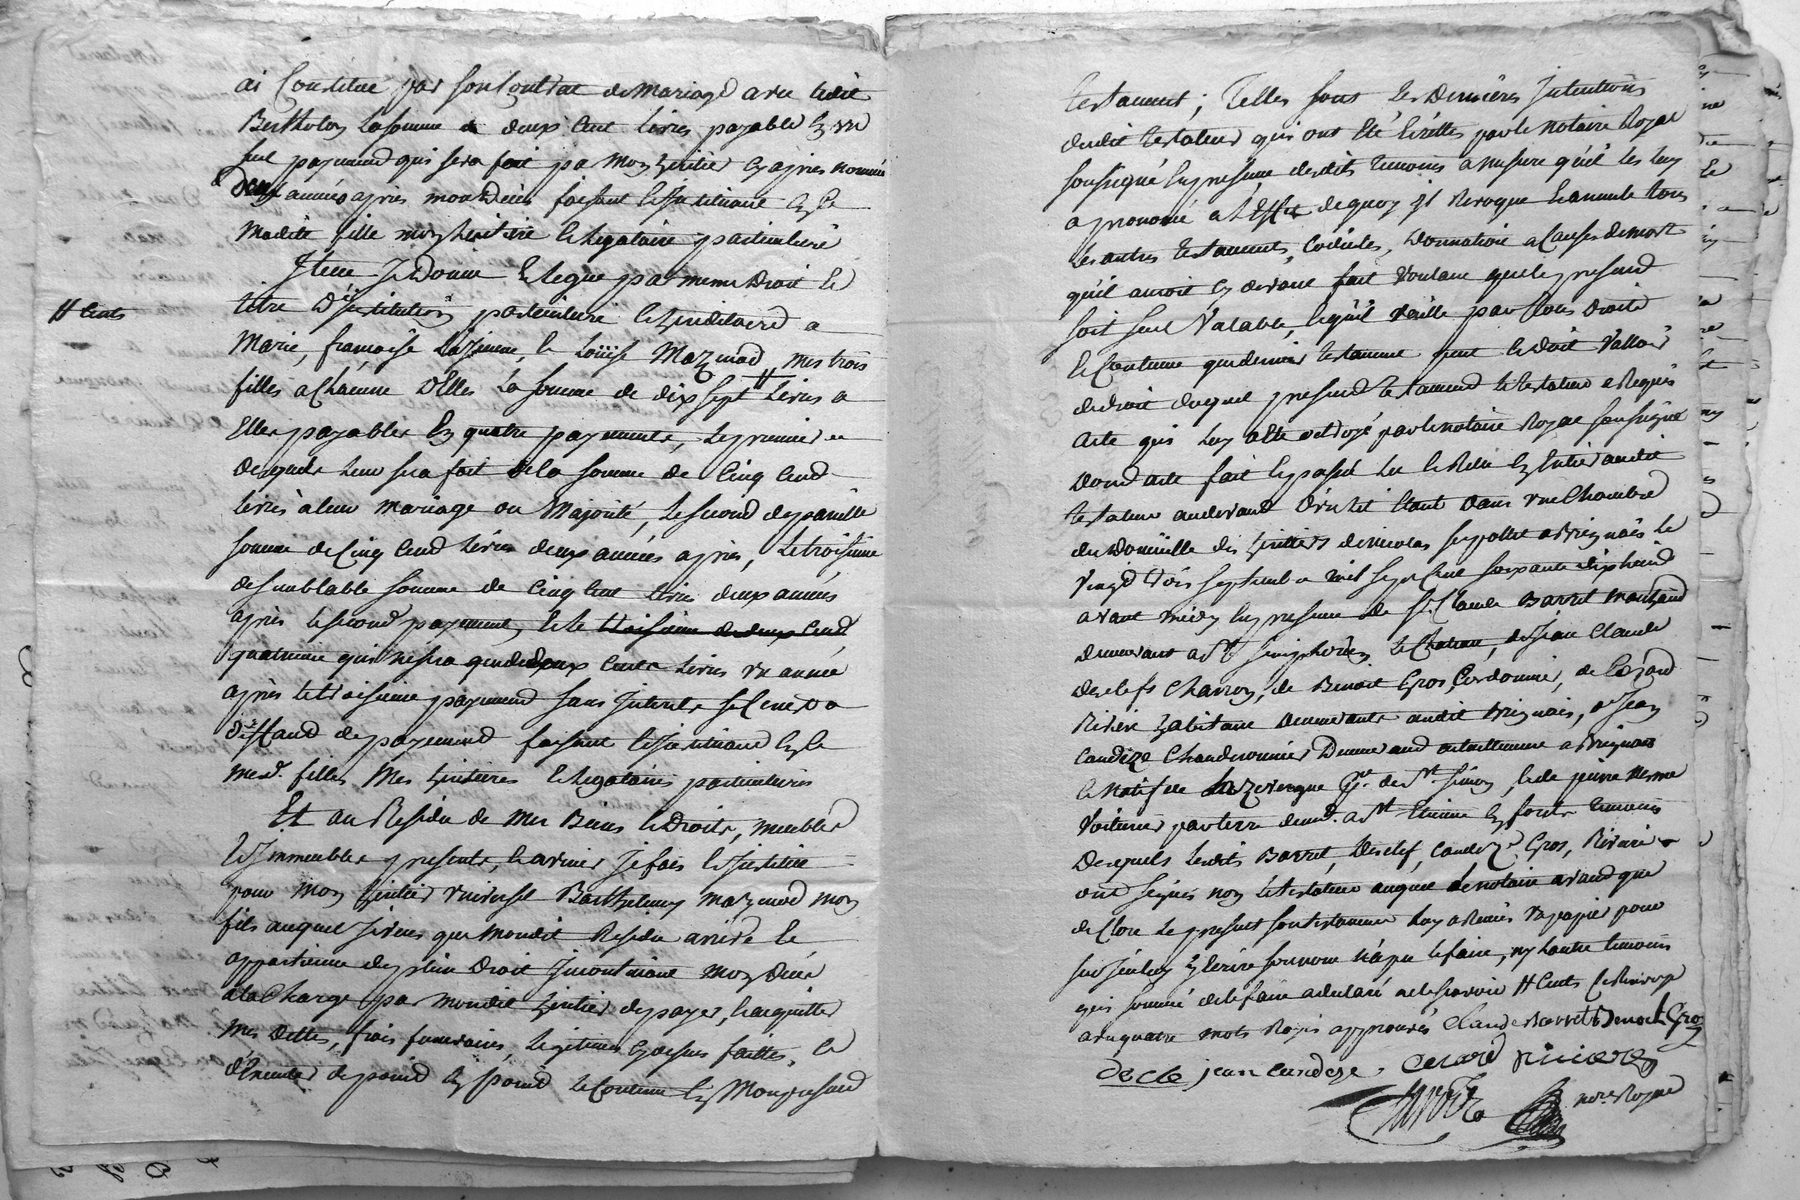 ai Constitué par son Contrat de mariage avec ledit
Bertholon la somme de deux Cent livres payable En un
seul payement qui sera fait par mon heritier cy apres nommé
deux années après mon Décès faisant & instituant En ce
madite fille mon heritiere & legataire particuliere
Item Je Donne & legue par meme Droit &
titre D'institution particuliere & hereditaire a
Marie, françoise & Louise Mazenod mes trois
filles a Chacune D'Elles La somme de dix sept # Livres a
Elles payables En quatre payements, le premier
desquels leur sera fait de la somme de Cinq Cent
livres à leur mariage ou Majorité, le second de pareille
somme de Cinq Cent livres deux années après, le troisieme
de semblable somme de Cinq Cent livres deux années
après le second payement, & le troisieme de deux Cent
quatrieme qui ne sera que de deux Cents livres un année
après le troisieme payement sans Interets si Ce n'est a
deffaud de payement faisant & instituant En ce
mesd. filles Mes heritieres & legataires particulieres
# Cents
Et au Residu de mes Biens & Droits, meubles
& Immeubles presents, & avenir Je fais & institue
pour mon heritier universel Barthelemy mazenod mon
fils auquel Je veus que mondit Residu arrive &
appartienne de plein Droit Incontinant mon décés
a la Charge par mondit heritier de payer, & acquitter
mes dettes, frais funeraires, legitimes cy dessus faittes, &
d'Executer de point En point le Contenu En Mon present
testament; Telles sont les Dernieres Intentions
dudit testateur qui ont été Ecrittes par le notaire Royal
soussigné En presence desdits temoins a mesure qu'il les luy
a prononcé a l'Effet de quoy il Revoque & annule tous
les autres testaments, Codiciles, Donnations a Causes de mort
qu'il auroit cy devant fait Voulant que le present
soit seul Valable, & qu'il vaille par tous Droits
& Coutume que dernier testament peut & doit Valloir
de droit duquel present testament le testateur a Requis
Acte qui luy a Eté octroyé par le notaire Royal soussigné
Dont acte fait & passé lu & Relu En Entier audit
testateur au devant son lit Etant Dans une Chambre
du Domicille des heritiers de nicolas a Brignais le
vingt trois septembre mil sept Cent soixante dix huit
avant midy En presence de Sr. Claude Barret marchand
demeurant a St simphorien le Chateau, de Jean Claude
Desclefs Charron, de Benoit Gros, Cordonnier, de Gerard
Riviere habitant Demeurants audit Brignais, de Jean
Candeze Chaudronnier Demeurant actuellement a Brignais
& Natif de de St. simon, & de pierre
Voiturier par terre demt. a St Etienne En forêts temoins
Desquels lesdits Barret, Desclef, Candeze, Gros, Riviere
ont signés non le testateur auquel le notaire avant que
de Clore le present son testament luy a Remis un papier pour
sur Iceluy Ecrire son nom n'a pu le faire, ny l'autre temoin
qui sommé de le faire a declaré ne le scavoir # Cents
quatre mots Rayés approuvés Claude Barret Benoit Gros
Decle jean candeze. Gerard riviere
nore. Royal